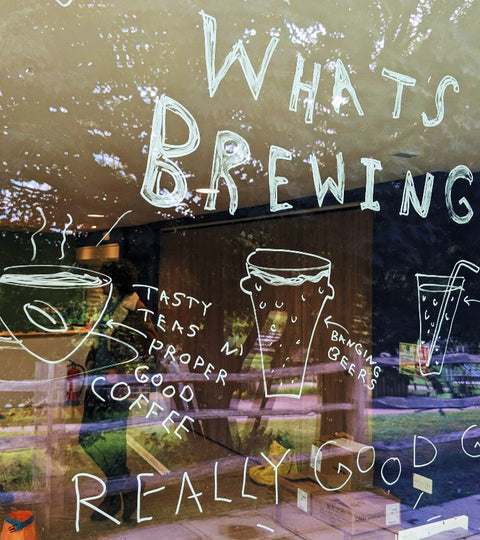 WHAT'S
BREWING
TASTY
TEAS N
PROPER
GOOD
COFFEE
BANGING
BEERS
REALLY GOOD G